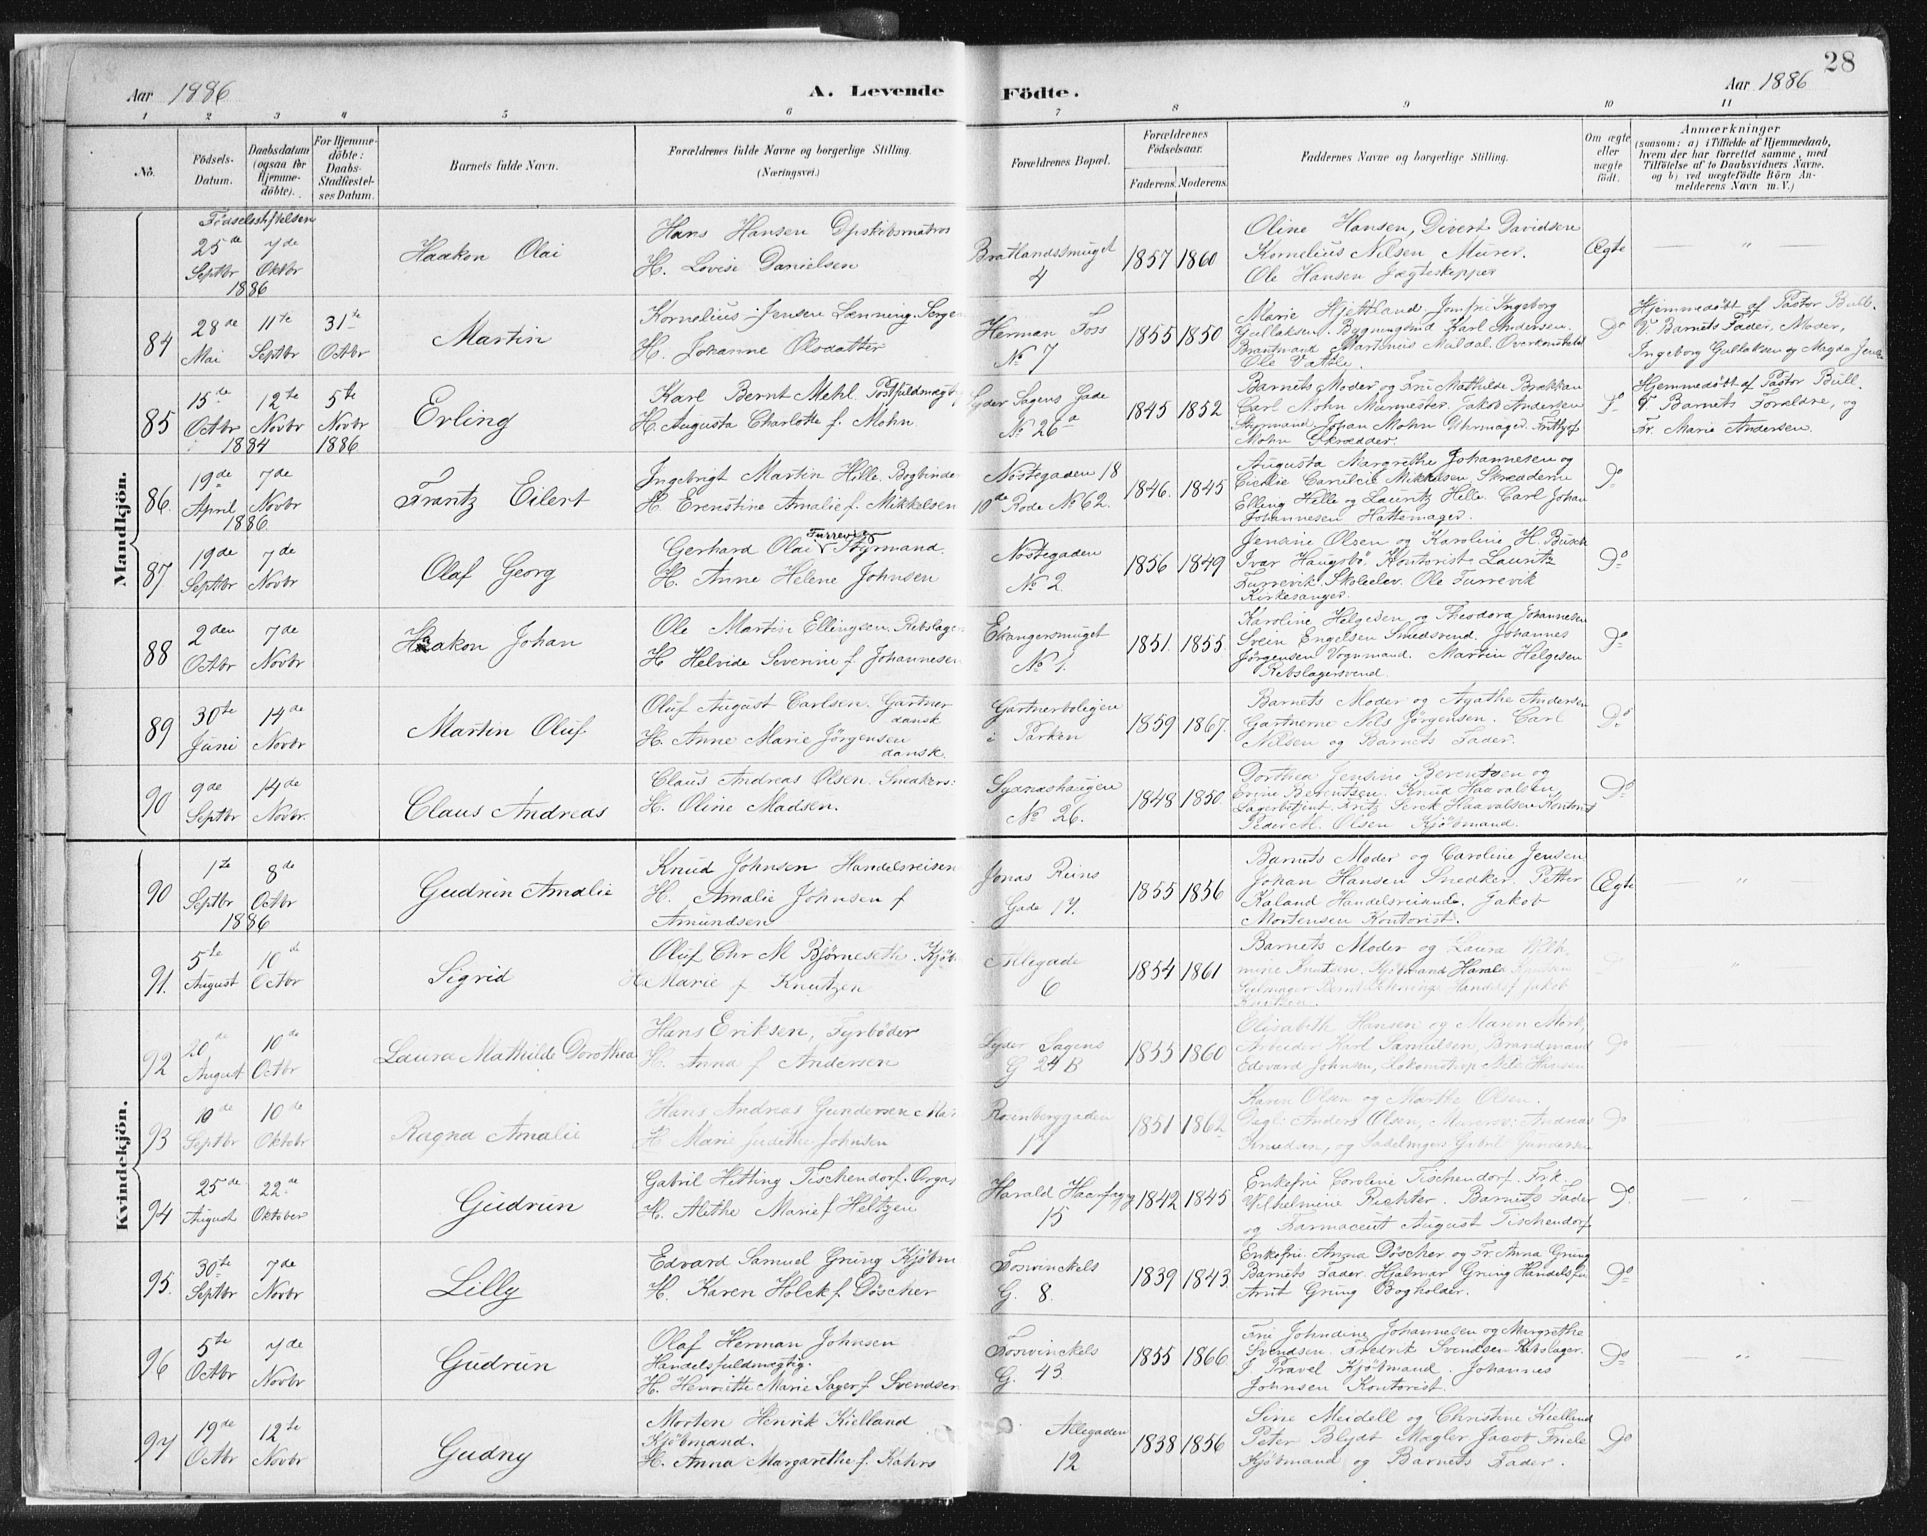 28
Aar 1886
A. Levende
Födte.
Aar 1886
1 2 3 4 5 6 7 8 9 10 11
No.
Födsels-
Datum.
Daabsdatum
(ogsaa for
Hjemme-
döbte).
For Hjemme-
döbte:
Daabs-
Stadfæstel-
ses Datum.
Barnets fulde Navn.
Forældrenes fulde Navne og borgerlige Stilling.
(Næringsvei.)
Forældrenes Bopæl.
Forældrenes
Födselsaar.
Faderens. Moderens.
Faddernes Navne og borgerlige Stilling.
Om ægte
eller
uægte
født.
Anmærkninger
(saasom: a) i Tilfælde af Hjemmedaab,
hvem der har forrettet samme, med
Tilföielse af to Daabsvidners Navne,
og b) ved uægtefödte Börn An-
melderens Navn m. V.)
Mandkjön.
Fødselsstiftelsen
25de Septbr 1886
7de Oktbr
Haakon Olai
Hans Hansen
H. Lovise Danielsen
Bratlandssmuget
4
1857 1860
Oline Hansen, Divert Davidsen
Kornelius Nilsen Murer.
Ole Hansen Jægteskipper
Ægte
— " —
84
28de Mai
11te Septbr
31te Octbr
Martin
Kornelius Jensen Lænning
H. Johanne Olsdatter
Herman Foss
No 7
1855 1850
Marie Hjettland Jomfru Ingeborg
Gullaksen Karl Andersen
Brantmand
Ole Vatle
Do
Hjemmedøbt af Pastor Bull.
V. Barnets Fader, Moder,
Ingeborg Gullaksen og Magda
85
15de Octbr 1884
12te Novbr
5te Novbr 1886
Erling
Karl Bernt Mehl
H. Augusta Charlotte f. Mohn
Lyder Sagens Gade
No 26a
1845 1852
Barnets Moder og Fru Mathilde Brekkan
Carl Mohn Murmester. Jakob Andersen
Styrmand Johan Mohn Uhrmager. Frittjof
Mohn Skrædder.
Do
Hjemmedøbt af Pastor Bull.
V. Barnets Forældre, og
Fr. Marie Andersen.
86.
19de April 1886
7de Novbr
Frantz Eilert
Ingebrigt Martin Hille. Bogbinder
H. Ernstine Amalie f. Mikkelsen
Nøstegaden 18
10de Rode No 62.
1846. 1845
Augusta Margrethe Johannesen og
Cicilie Mikkelsen. Skrædderne
Elling Hille og Lauritz Hille. Carl Johan
Johannesen Hattemager.
Do
87
19de Septbr
7de Novbr
Olaf Georg
Gerhard Olai Furrevig Styrmand.
H. Anne Helene Johnsen
Nøstegaden
No 2.
1856 1849
Jensine Olsen og Karoline H. Busch
Ivar Haugsbø Kontorist Lauritz
Furrevik Skoleelev. Ole Furrevik
Kirkesanger.
Do
88
2den Octbr
7de Novbr
Haakon Johan
Ole Martin Ellingsen. Rebslager
H. Helvide Severine f. Johannesen
Ekangersmuget
No 1.
1851. 1855
Karoline Helgesen og Theodora Johannesen
Svein Engelsen Smedsvend. Johannes
Jørgensen Vognmand. Martin Helgesen
Rebslagersvend.
Do
89
30te Juni
14de Novbr
Martin Oluf
Oluf August Carlsen. Gartner
dansk
H. Anne Marie Jörgensen
dansk.
Gartnerboligen
i Parken
1859 1867.
Barnets Moder og Agathe Andersen
Gartnerne Nils Jörgensen. Carl
Nilsen og Barnets Fader.
Do
90
9de Septbr
14de Novbr.
Claus Andreas
Claus Andreas Olsen. Snekkers:
H. Oline Madsen.
Sydnæshaugen
No 26.
1848 1850
Dorthea Jensine Berentsen og
Berentsen. Knud Haavalsen
Lagerbetjent. Fritz Haavalsen Kontorist
Peder M. Olsen Kjöbmand.
Do
Kvindekjön.
90
1te Septbr 1886
8de Octbr
Gudrun Amalie
Knud Johnsen Handelsreisen
H. Amalie Johnsen f
Amundsen
Jonas Reins
Gade 17.
1855 1856
Barnets Moder og Caroline Jensen
Johan Hansen Snedker. Petter
Kaland Handelsreisende. Jakob
Mortensen Kontorist.
Ægte
— " —
91.
5te August
10de Octbr
Sigrid
Oluf Chr M Björnesethe. Kjöb
H. Marie f Knutzen
Allegade
6
1854 1861
Barnets Moder og Laura
mine Knutzen, Kjöbmand Harald
— " —
92
20de August
10de Octbr
Laura Mathilde Dorothea
Hans Eriksen, Fyrbøder
H. Anna f Andersen
Lyder Sagens
G 24 B
1855 1860
Elisabeth Hansen og Maren Mørk,
Arbeider Karl Samuelsen, Brandmand
Edevard Johnsen, Nils Hansen
Do
93
10de Septbr
10de Oktobr
Ragna Amalie
Hans Andreas Gundersen
H. Marie Judithe Johnsen
Rosenberggaden
17
1851 1862
Karen Olsen og Marthe Olsen.
Anders Olsen, Andreas
Knudsen, og Gabril Gundersen
Do
94
25de August
22de Oktober
Gudrun
Gabril Hetting Tischendorf.
H. Alethe Marie f Heltzen
Harald Haarfag
15
1842 1845
Enkefru Caroline Tischendorf. Frk.
Vilhelmine Richter. Barnets Fader
og Farmaceut August Tischendorf
Do
95.
30te Septbr
7de Novbr
Lilly
Edvard Samuel Grung Kjöbm
H. Karen Holck f. Döscher
Fosvinckels
G. 8.
1839 1843.
Enkefru Anna Döscher og Fr. Anna Grung
Barnets Fader. Hjalmar Grung
Arnt Grung Bogholder.
Do
96
5te Octbr
7de Novbr
Gudrun
Olaf Herman Johnsen
Handelsfuldmægtig.
H. Henriette Marie Sager f. Svendsen
Fosvinckels
G. 43
1855 1866
Fru Johndine Johannesen og Margrethe
Svendsen. Fredrik Svendsen Rebslager.
J. Pravel Kjöbmand. Johannes
Johnsen Kontorist.
Do
"
97
19de Octbr
12te Novbr
Gudny
Morten Henrik Kielland
Kjöbmand.
H. Anna Margarethe f. Kahrs
Allegaden
12
1838 1856
Sine Meidell og Christine Kielland
Peter Blydt Mægler Jacob Friele
Kjöbmand og Barnets Fader.
Do